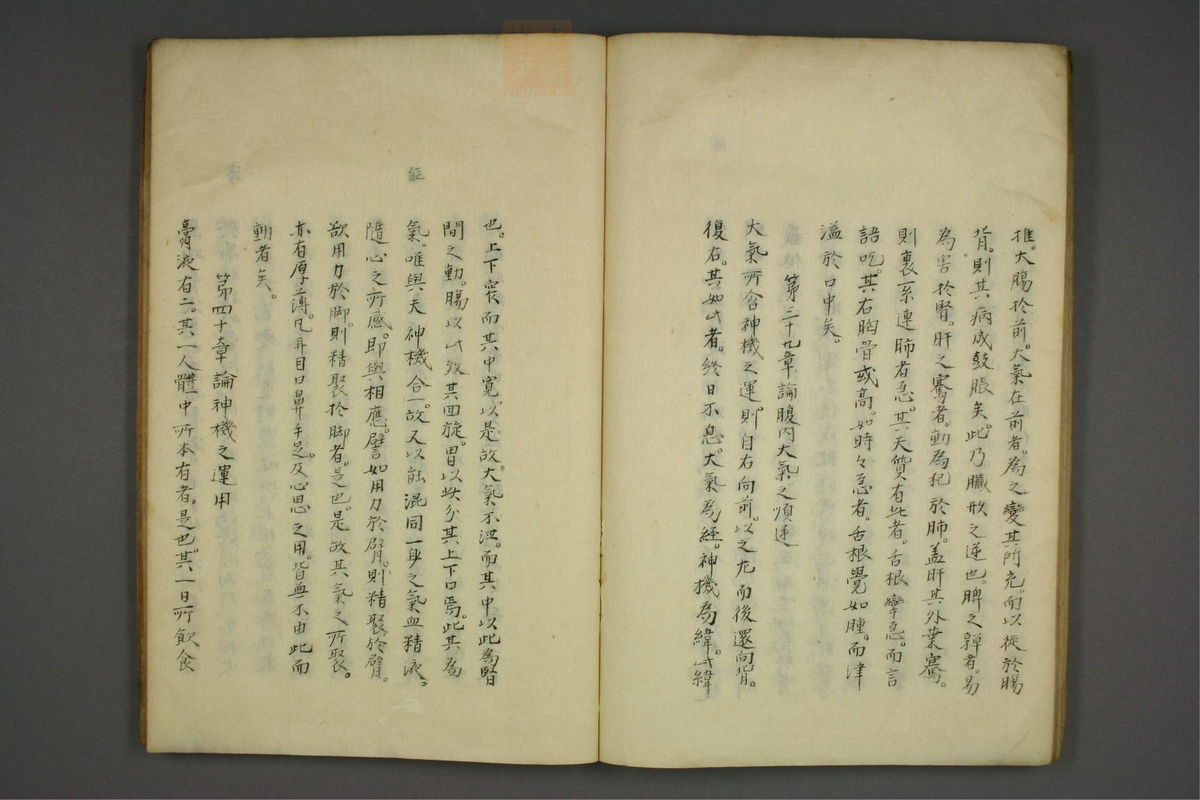 推。大腸於前。大氣在前者。為之變其所充。而以徙於腸
背。則其病成鼓脹矣。此乃臟形之逆也。脾之者。易
為害於腎。肝之騫者。動為犯於肺。蓋肝其外葉騫。
則裏一系連肺者急。其天質有此者。舌根攣急。而言
語吃。其右胸骨或高。如時々急者。舌根覺如腫。而津
溢於口中矣。
第三十九章論腹内大氣之順逆
大氣所含神機之運。則自右向前。以之左而後還向背。
復右。其如此者。終日不息。大氣為經。神機為緯。此緯
也。上下窄而其中寬。以是故。大氣不泄。而其中以此為腎
間之動。腸以此效其回旋。胃以此分其上下口焉。此其為
氣。唯與夫神機合一。故又以能混同一身之氣血精液。
隨心之所感。即與相應。譬如用力於臂。則精聚於臂。
欲用力於脚。則精聚於脚者。是也。是故其氣之所聚。
亦有厚薄。凡耳目口鼻手足。及心思之用。皆無不由此而
動者矣。
第四十章論神機之運用
膏液有二。其一人體中所本有者。是也。其一日所飲食